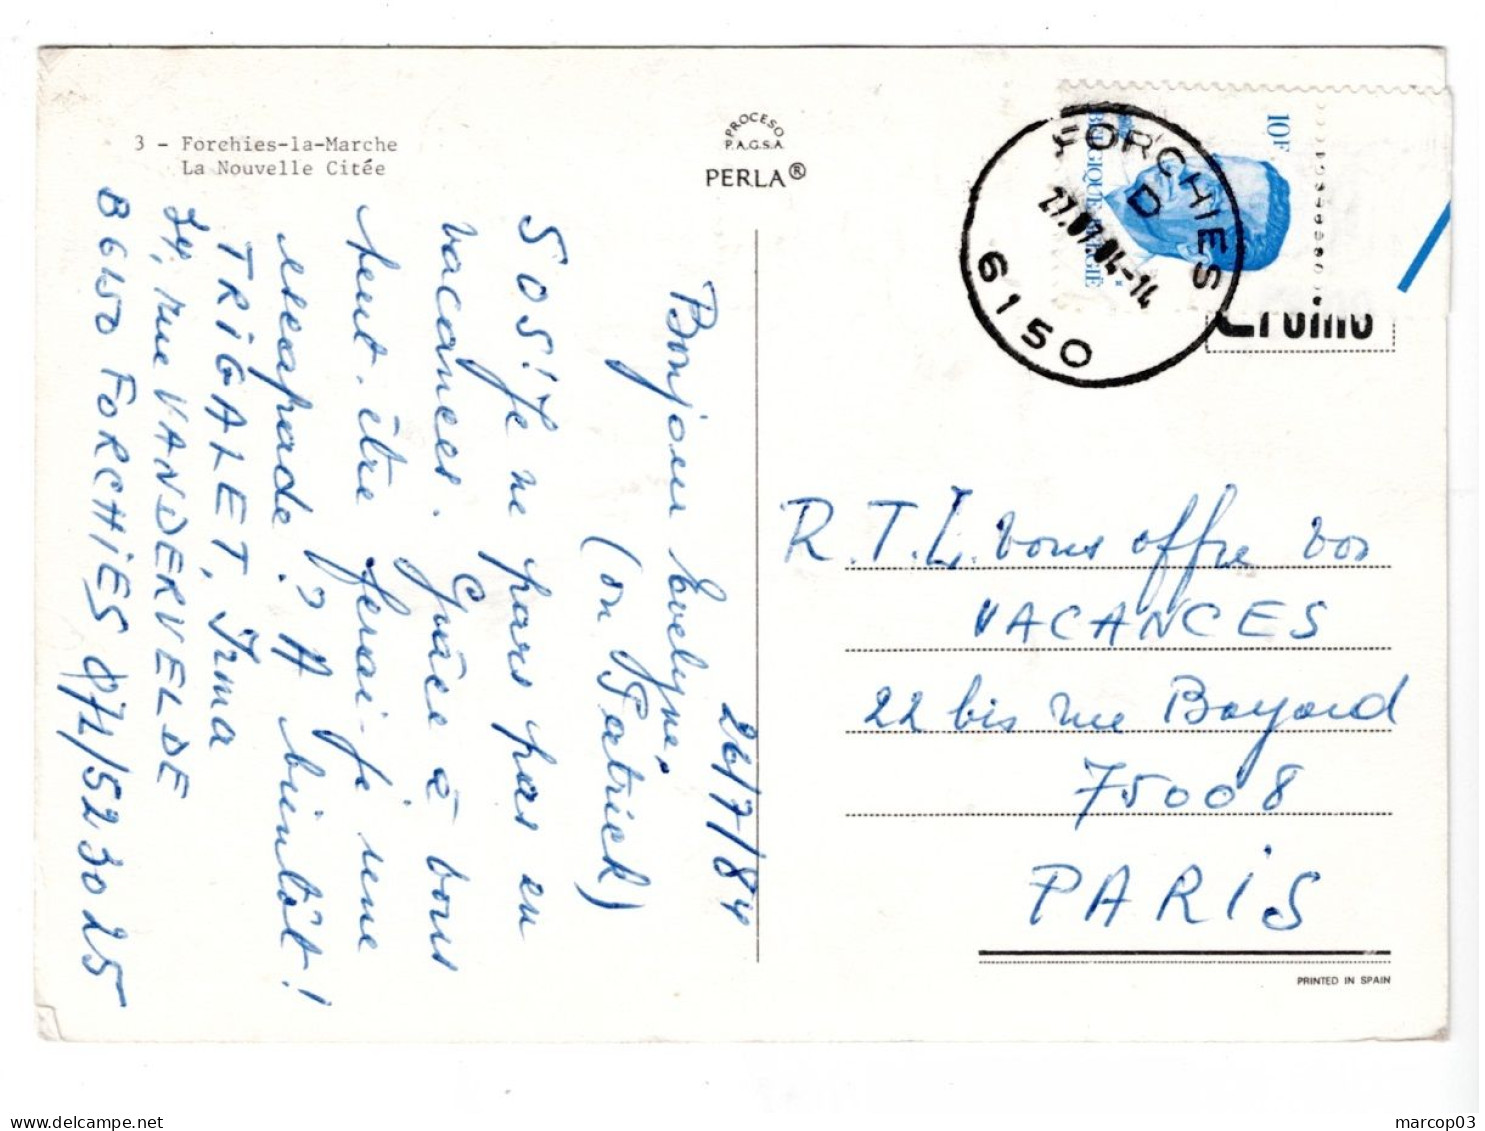 3 - Forchies-la-Marche
La Nouvelle Citée
PROCESO
P.A.G.S.A.
PERLA®
26/7/84
Bonjour Evelyne,
(ou Patrick)
SOS! Je ne pars pas en
vacances. Grâce à vous
peut-être ferai-je une
escapade? A bientôt!
TRIGALET, Irma
rue VANDERVELDE
FORCHIES 071/52 30 25
10F
BELGIQUE BELGIË
FORCHIES
D
27.07.84-14
6150
R.T.L. vous offre vos
VACANCES
22 bis rue Bayard
75008
PARIS
PRINTED IN SPAIN
marcop03